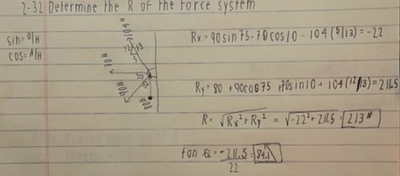 2-32 Determine the R of the force system
sin= O/H
cos= A/H
104#
70#
90#
80#
Rx= 90sin75-70cos10-104(5/13)=-22
Ry= 80+90cos75 70sin10+104(12/13)=211.5
R= √Rx²+Ry² = √-22²+211.5 = 213#
tan = -211.5 =
22